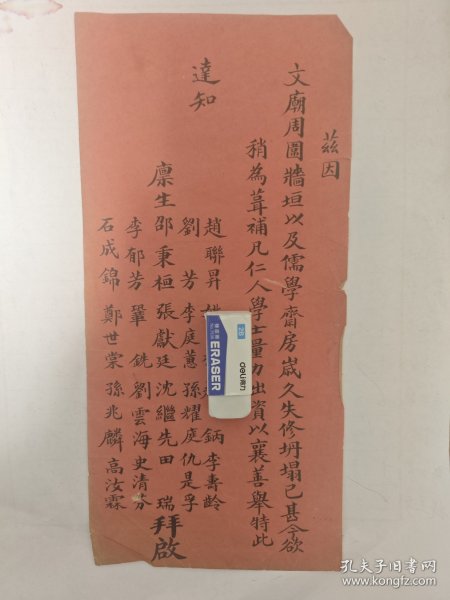 茲因
文廟周圍牆垣以及儒學齋房歲久失修坍塌已甚今欲
稍為葺補凡仁人學士量力出資以襄善舉特此
達知
趙聯昇 鈵 李壽齡
劉芳 李庭蕙 孫耀庭 仇是孚
廩生 邵秉桓 張獻廷 沈繼先 田瑞 拜啟
李郁芳 鞏銑 劉雲海 史清芬
石成錦 鄭世棠 孫兆麟 高汝霖
2B
deli得力
ERASER
孔夫子旧书网
www.kongfz.com